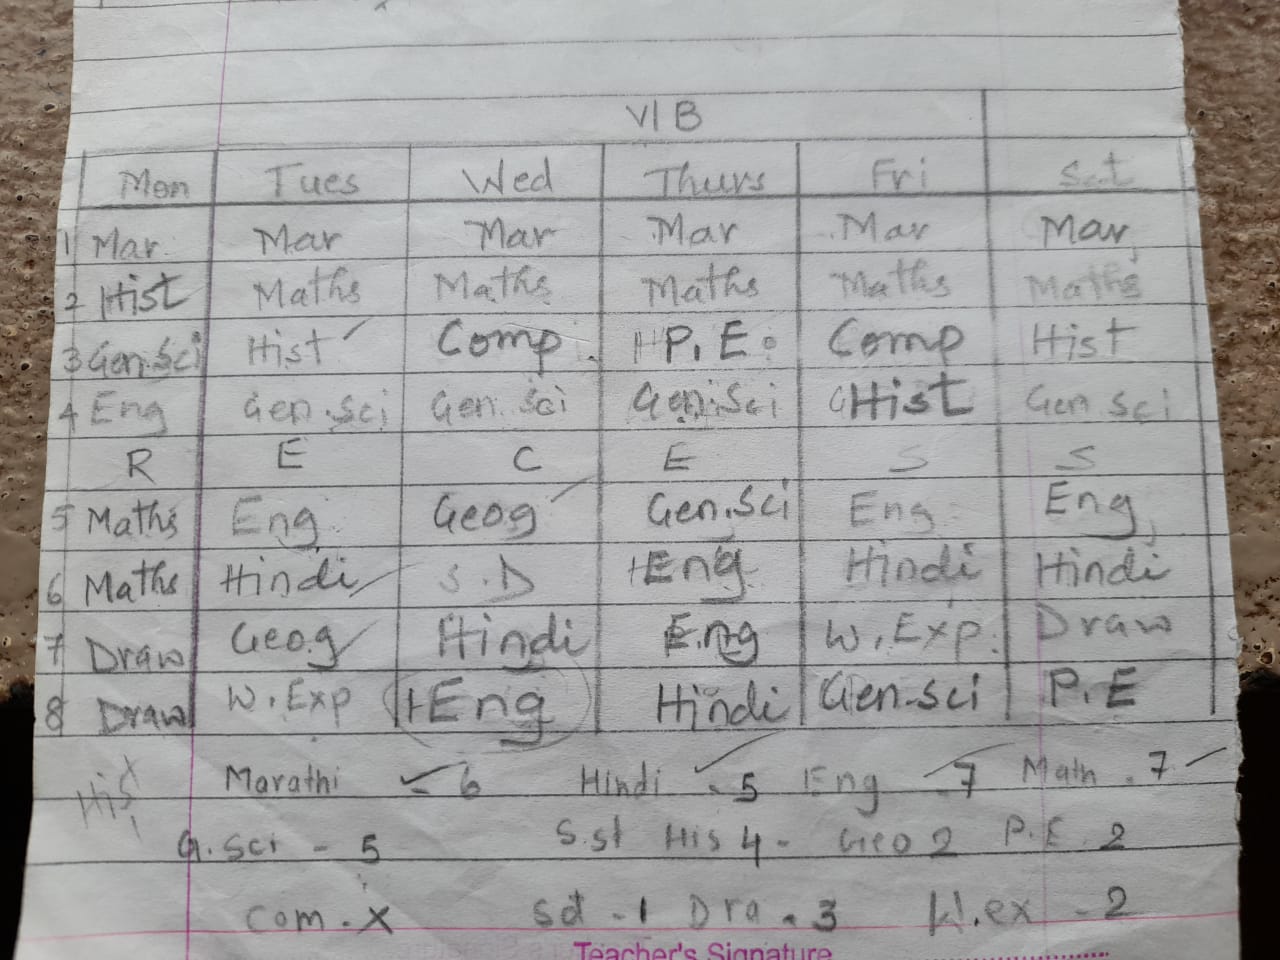 VI B
Mon Tues Wed Thurs Fri Sat
1 Mar. Mar Mar Mar Mar Mar
2 Hist Maths Maths Maths Maths Maths
3 Gen.Sci Hist Comp. P.E. Comp Hist
4 Eng Gen.Sci Gen.Sci Gen.Sci Hist Gen Sci
R E C E S S
5 Maths Eng Geog Gen.Sci Eng Eng
6 Maths Hindi S.D Eng Hindi Hindi
7 Draw Geog Hindi Eng W.Exp. Draw
8 Draw W.Exp Eng Hindi Gen.sci P.E
His Marathi ✓ 6 Hindi ✓ - 5 Eng ✓ 7 Math - 7 ✓
G.Sci - 5 S.st His 4 - Geo 2 P.E. 2
Com - X Sd - 1 Dra - 3 W.ex - 2
Teacher's Signature